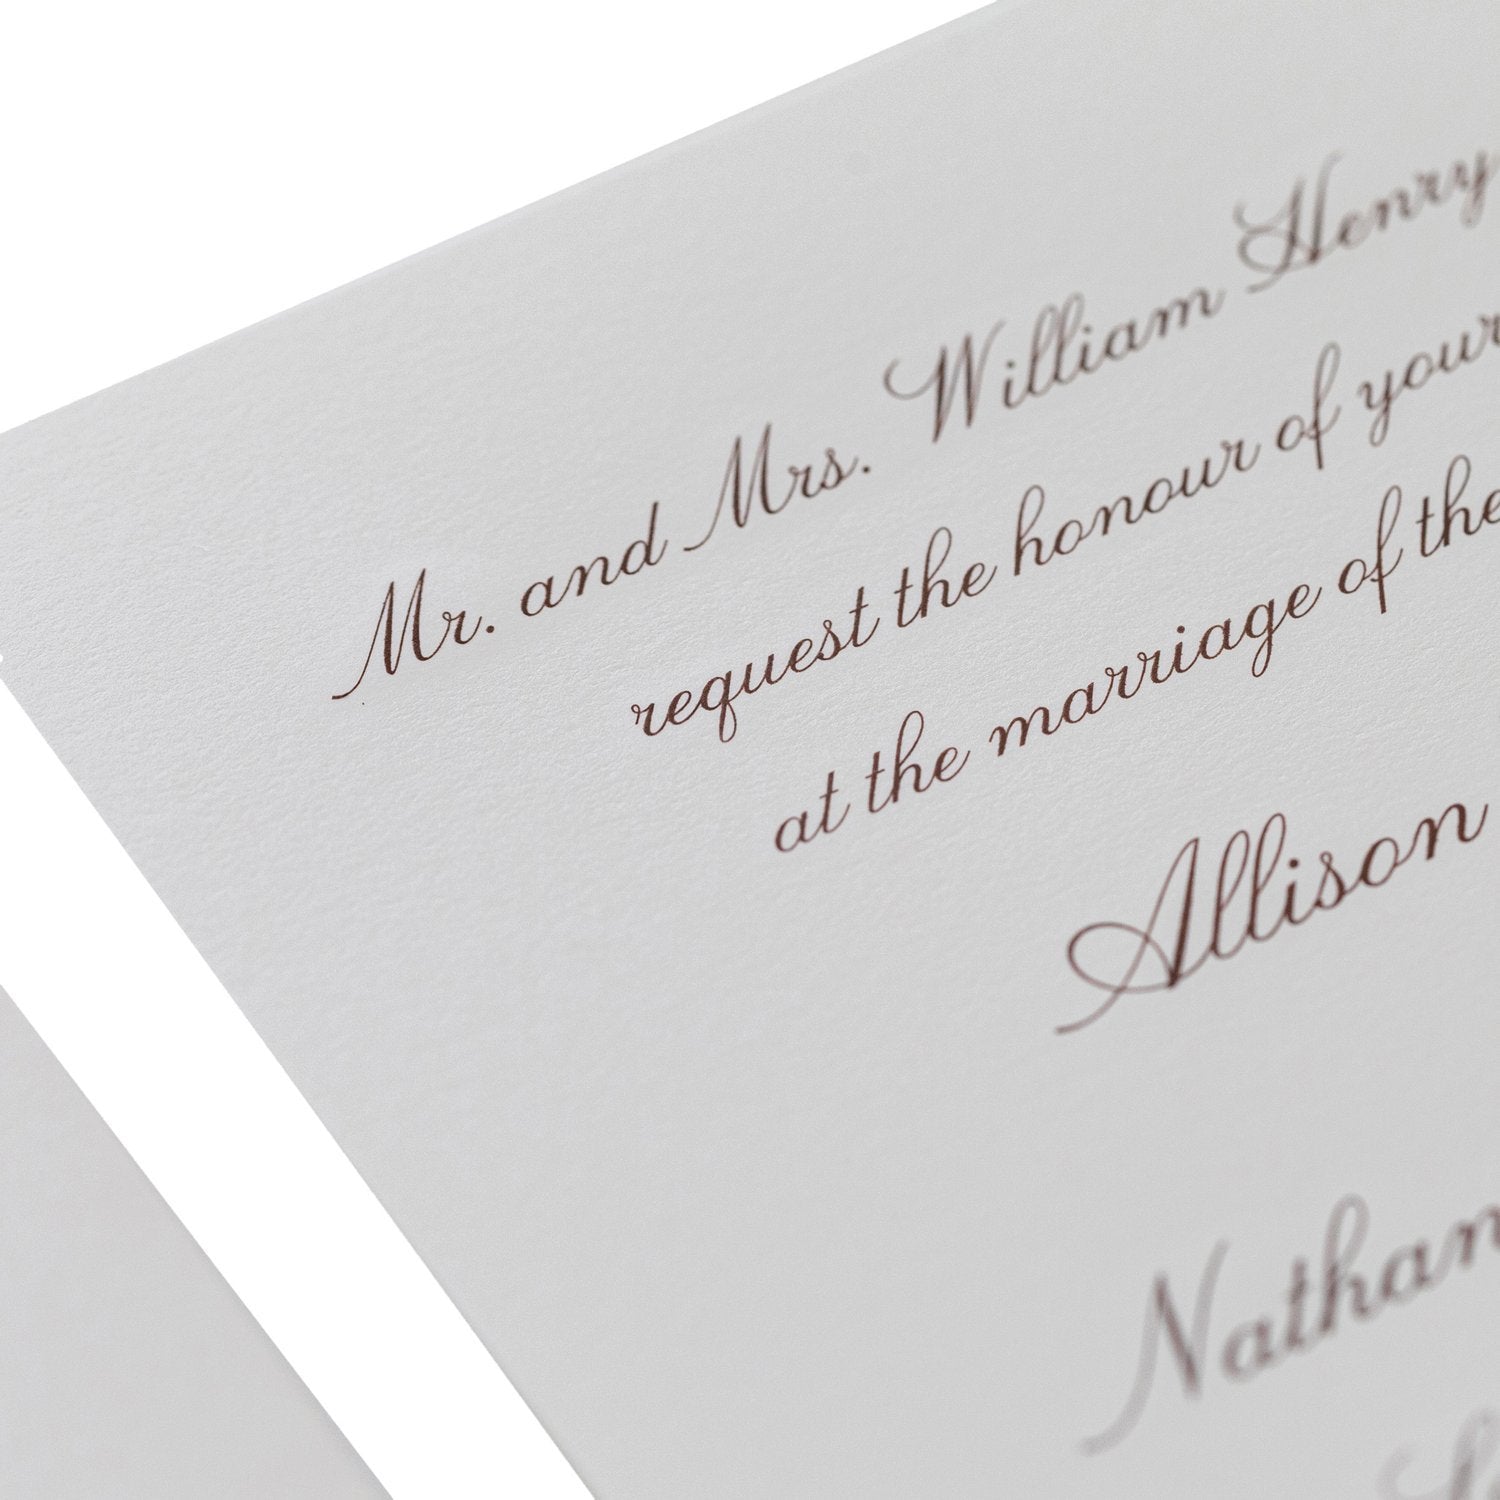 Mr. and Mrs. William Henry
request the honour of your
at the marriage of the
Allison
Nathan